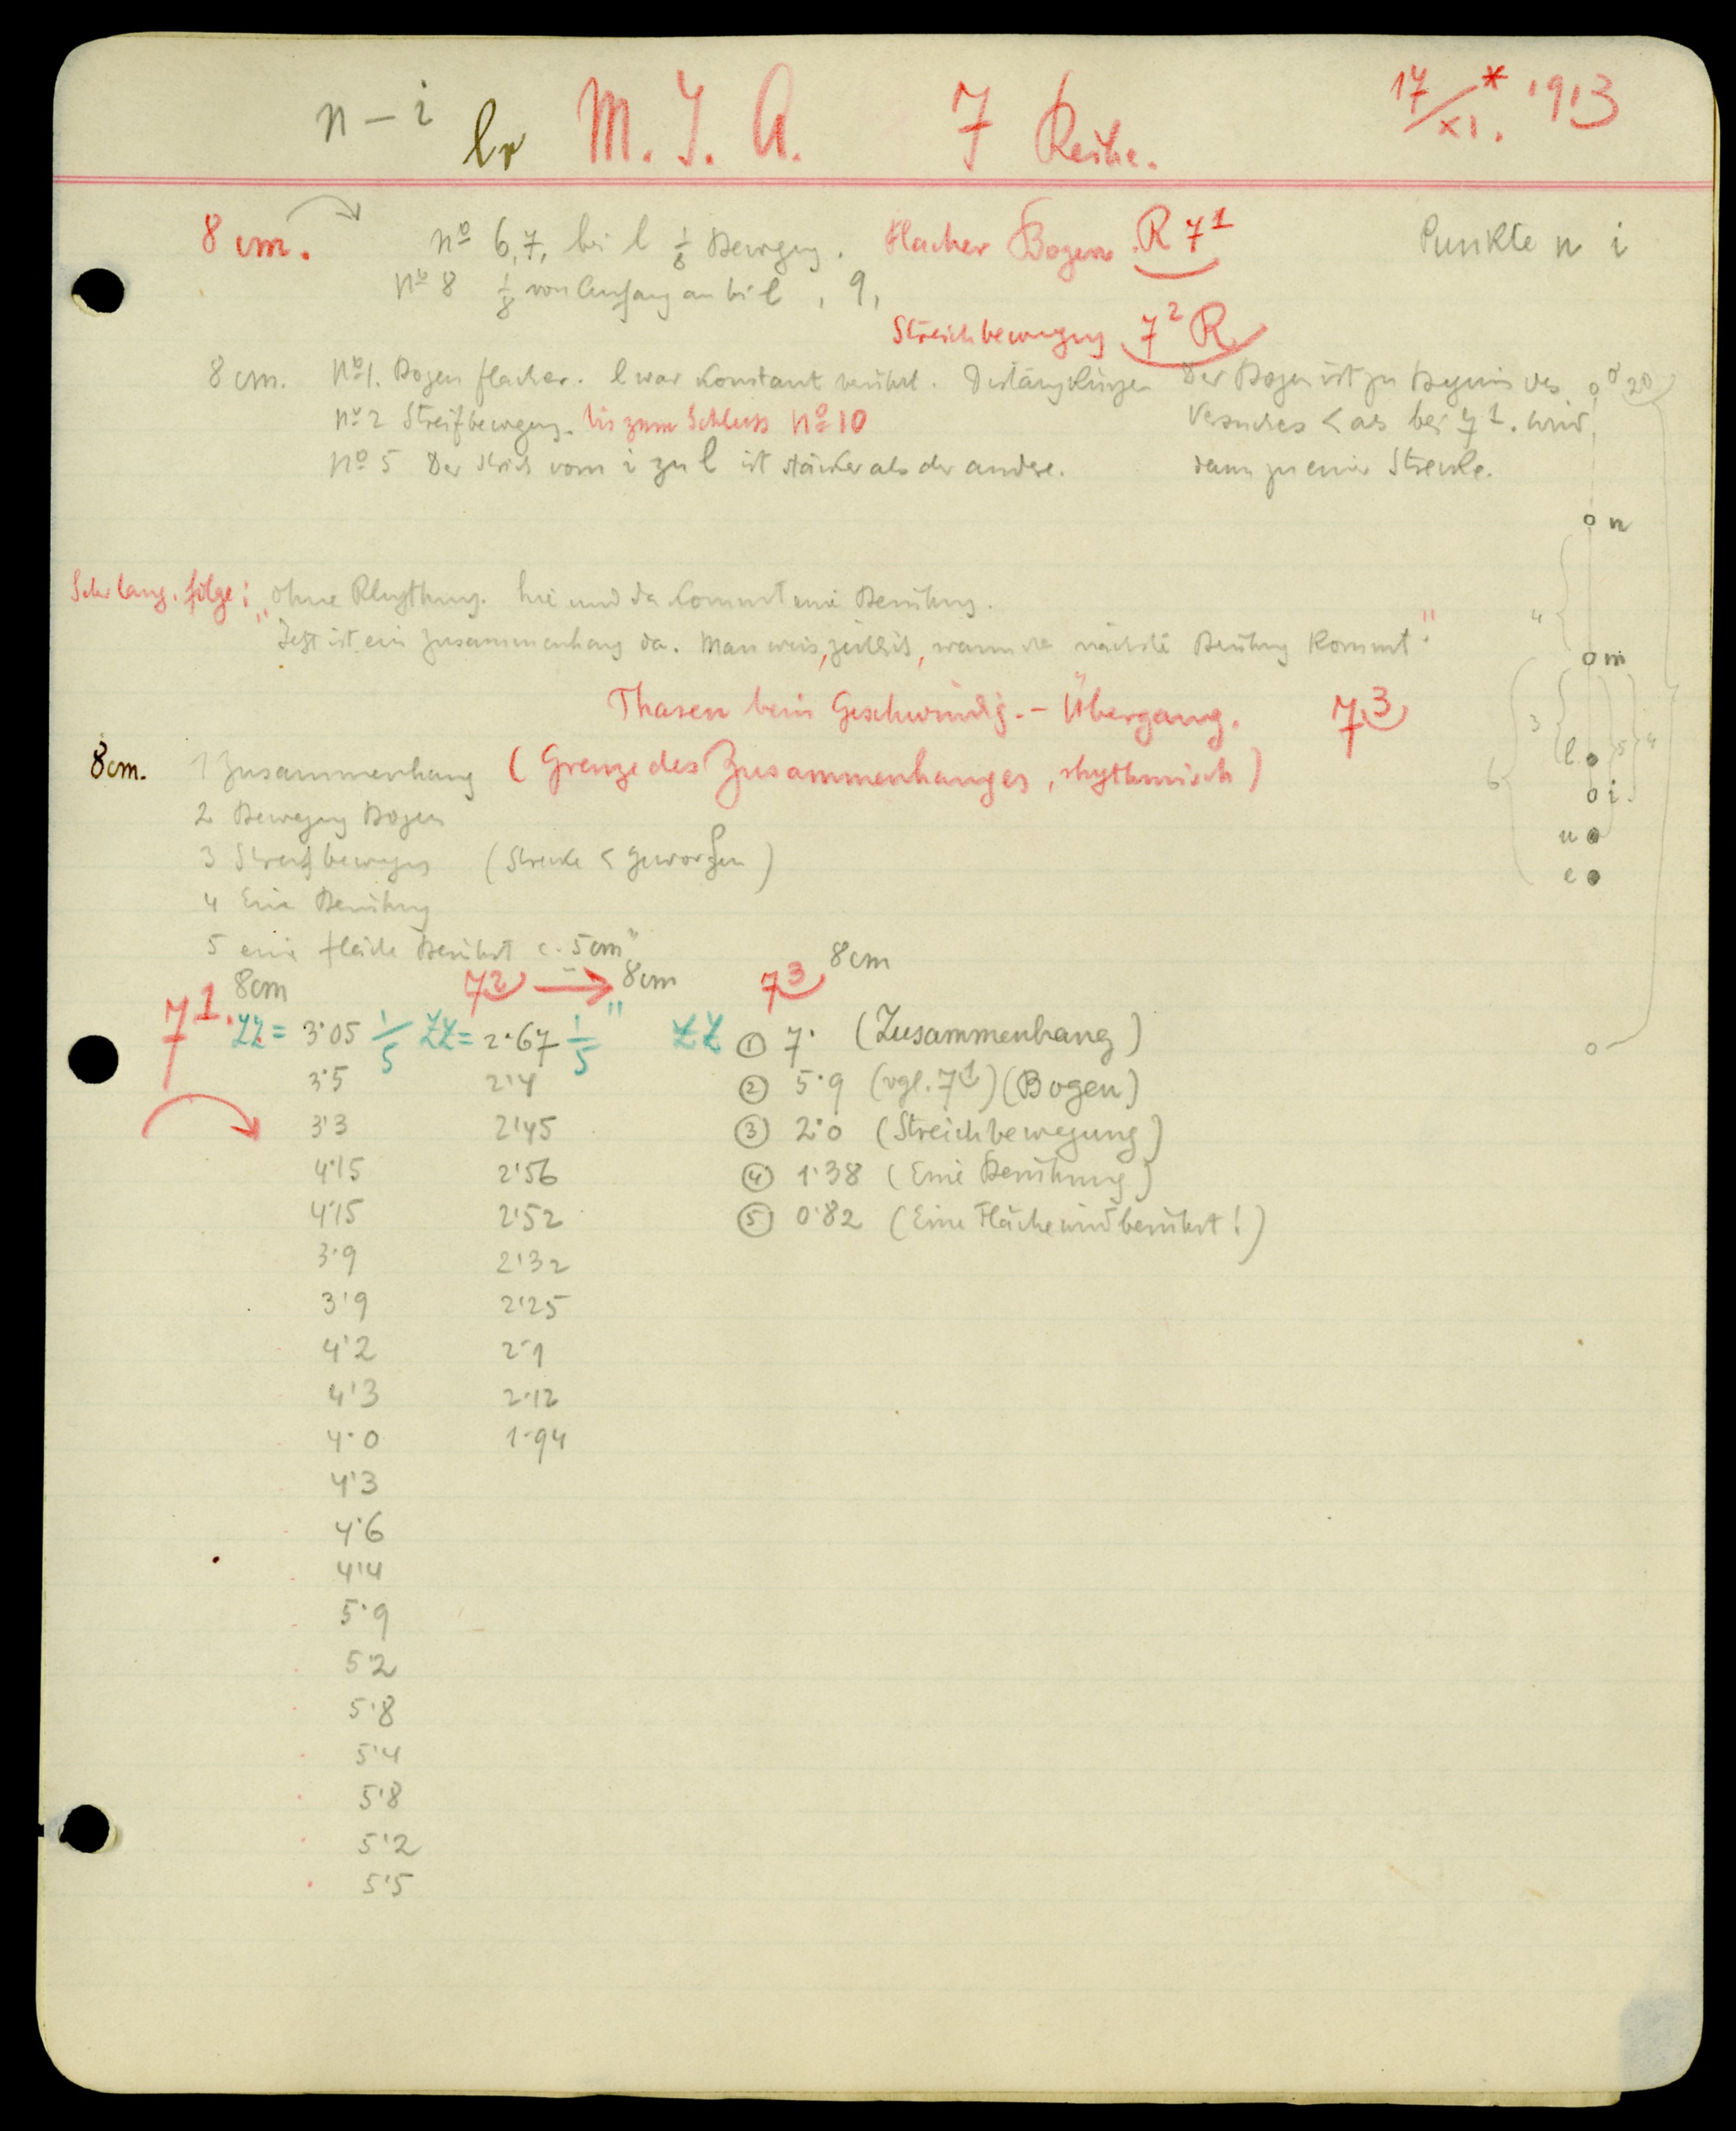 n – i lr M. J. A. 7 Reihe. 17/XI. * 1913
8 cm. nº 6, 7, bei l 1/8 Bewegung. Flacher Bogen. R 7¹ Punkte n i
Nº 8 1/8 von Anfang an bei l, 9,
Streichbewegung 7² R
8 cm. Nº 1. Bogen flacher. l war Konstant berührt. Der Bogen ist zu Beginn des 20
Nº 2 Streifbewegung. bis zum Schluss Nº 10 Versuches < als bei 7¹. wird
Nº 5 Der Strich vom i zu l ist stärker als der andere. dann zu einer Strecke.
n
Sehr lang. folge: „Ohne Rhythmus. hie und da kommt eine Berührung.
Jetzt ist ein Zusammenhang da. Man weis, zeitlich, wann die nächste Berührung kommt." 4
m
Phasen beim Geschwindig.- Übergang. 7³
3 5 4
l
8 cm. 1 Zusammenhang (Grenze des Zusammenhanges, rhythmisch) 6
i
2 Bewegung Bogen
u
3 Streifbewegung (Strecke < geworden)
e
4 Eine Berührung
5 eine Fläche Berührt c. 5 cm"
7¹. 8cm 7² → 8cm 7³ 8cm
ZZ = 3·05 1/5 ZZ = 2·67 1/5" ZZ ① 7· (Zusammenhang)
3·5 2·4 ② 5·9 (vgl. 7¹) (Bogen)
3·3 2·45 ③ 2·0 (Streichbewegung)
4·15 2·56 ④ 1·38 (Eine Berührung)
4·15 2·52 ⑤ 0·82 (Eine Fläche wird berührt!)
3·9 2·32
3·9 2·25
4·2 2·1
4·3 2·12
4·0 1·94
4·3
4·6
4·4
5·9
5·2
5·8
5·4
5·8
5·2
5·5